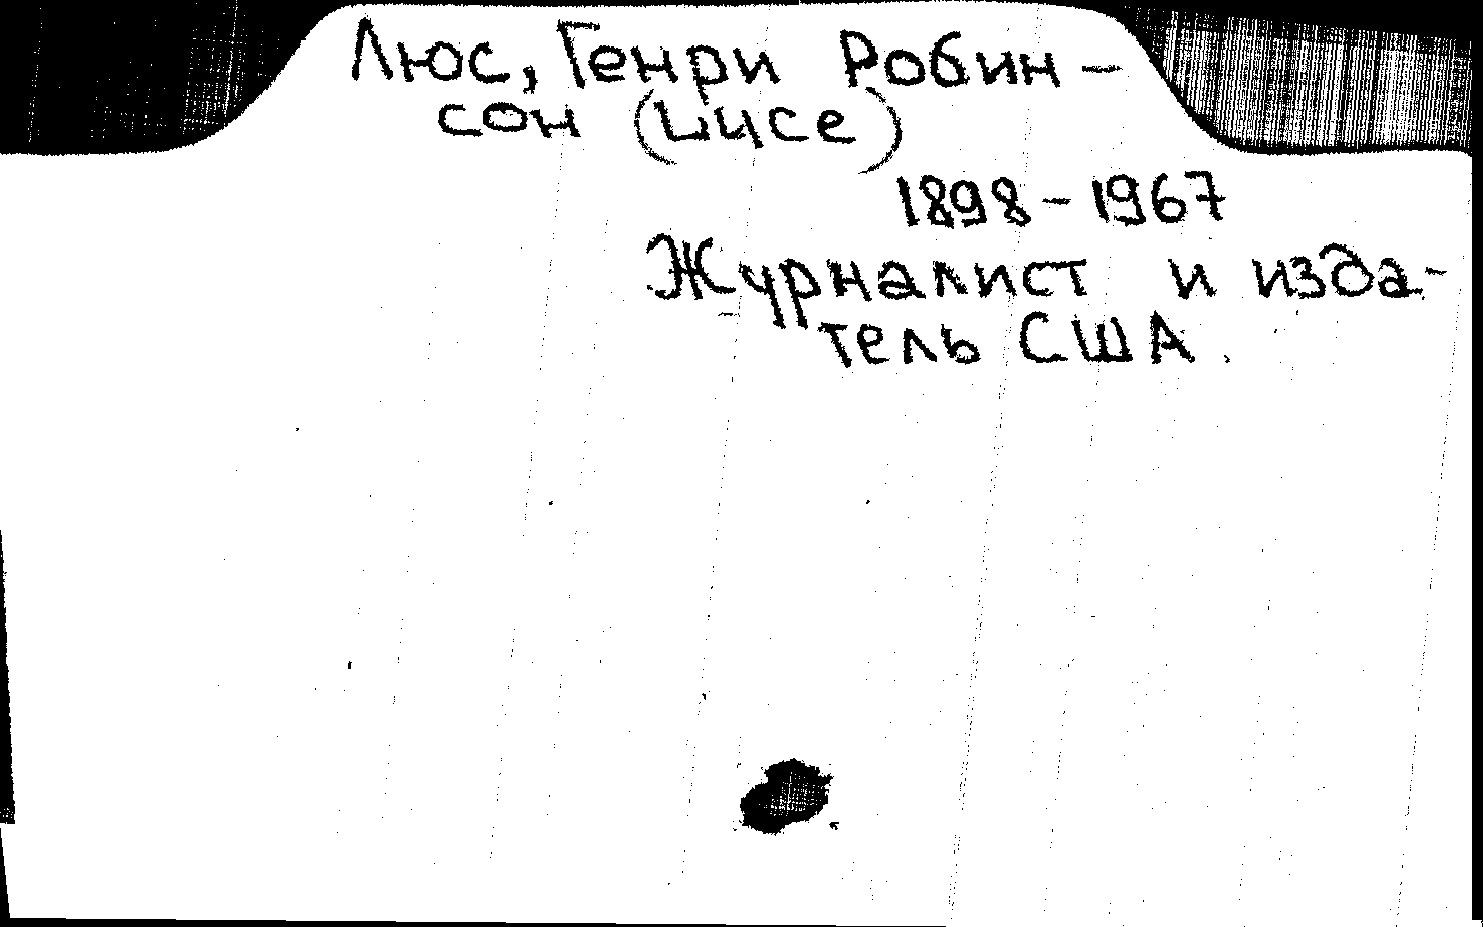 Люс, Генри Робин-
сон (Luce)
1898-1967
Журналист и изда-
тель США.